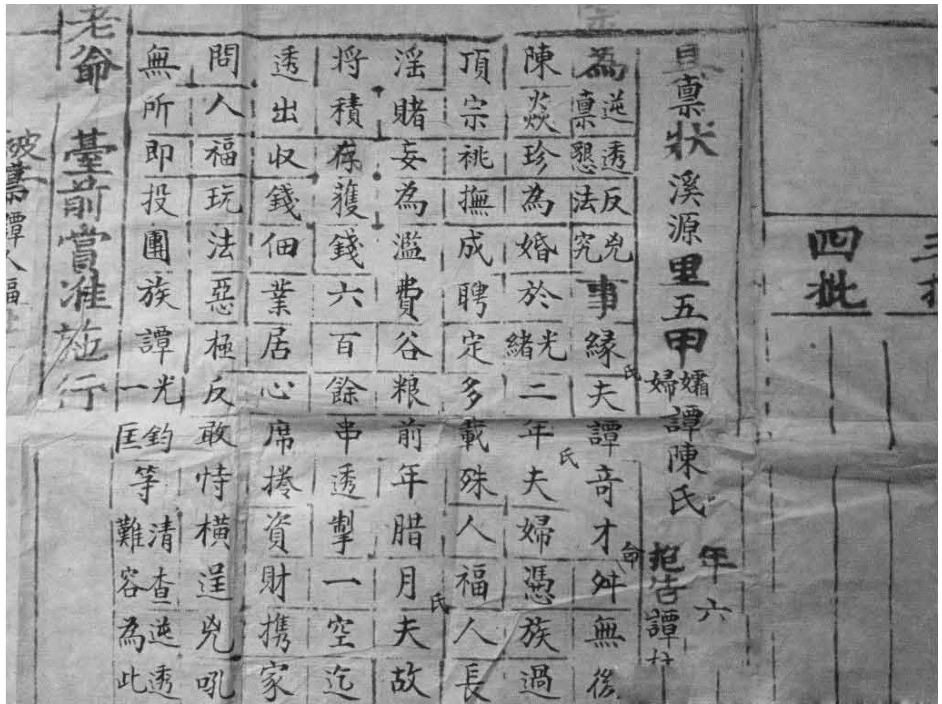 四批
具稟狀溪源里五甲孀婦譚陳氏年六
抱告譚
為逆透反兇稟懇法究事緣氏夫譚奇才舛無後
陳焱珍為婚於光緒二年氏夫婦憑族過
頂宗祧撫成聘定多載殊人福人長
淫賭妄為濫費谷粮前年腊月氏夫故
将積存獲錢六百餘串透掣一空迄
透出收錢佃業居心席捲資財携家
問人福玩法惡極反敢恃橫逞兇吼
無所即投團族譚光一鈞匡等清查逆透難容為此
老爺臺前賞准施行